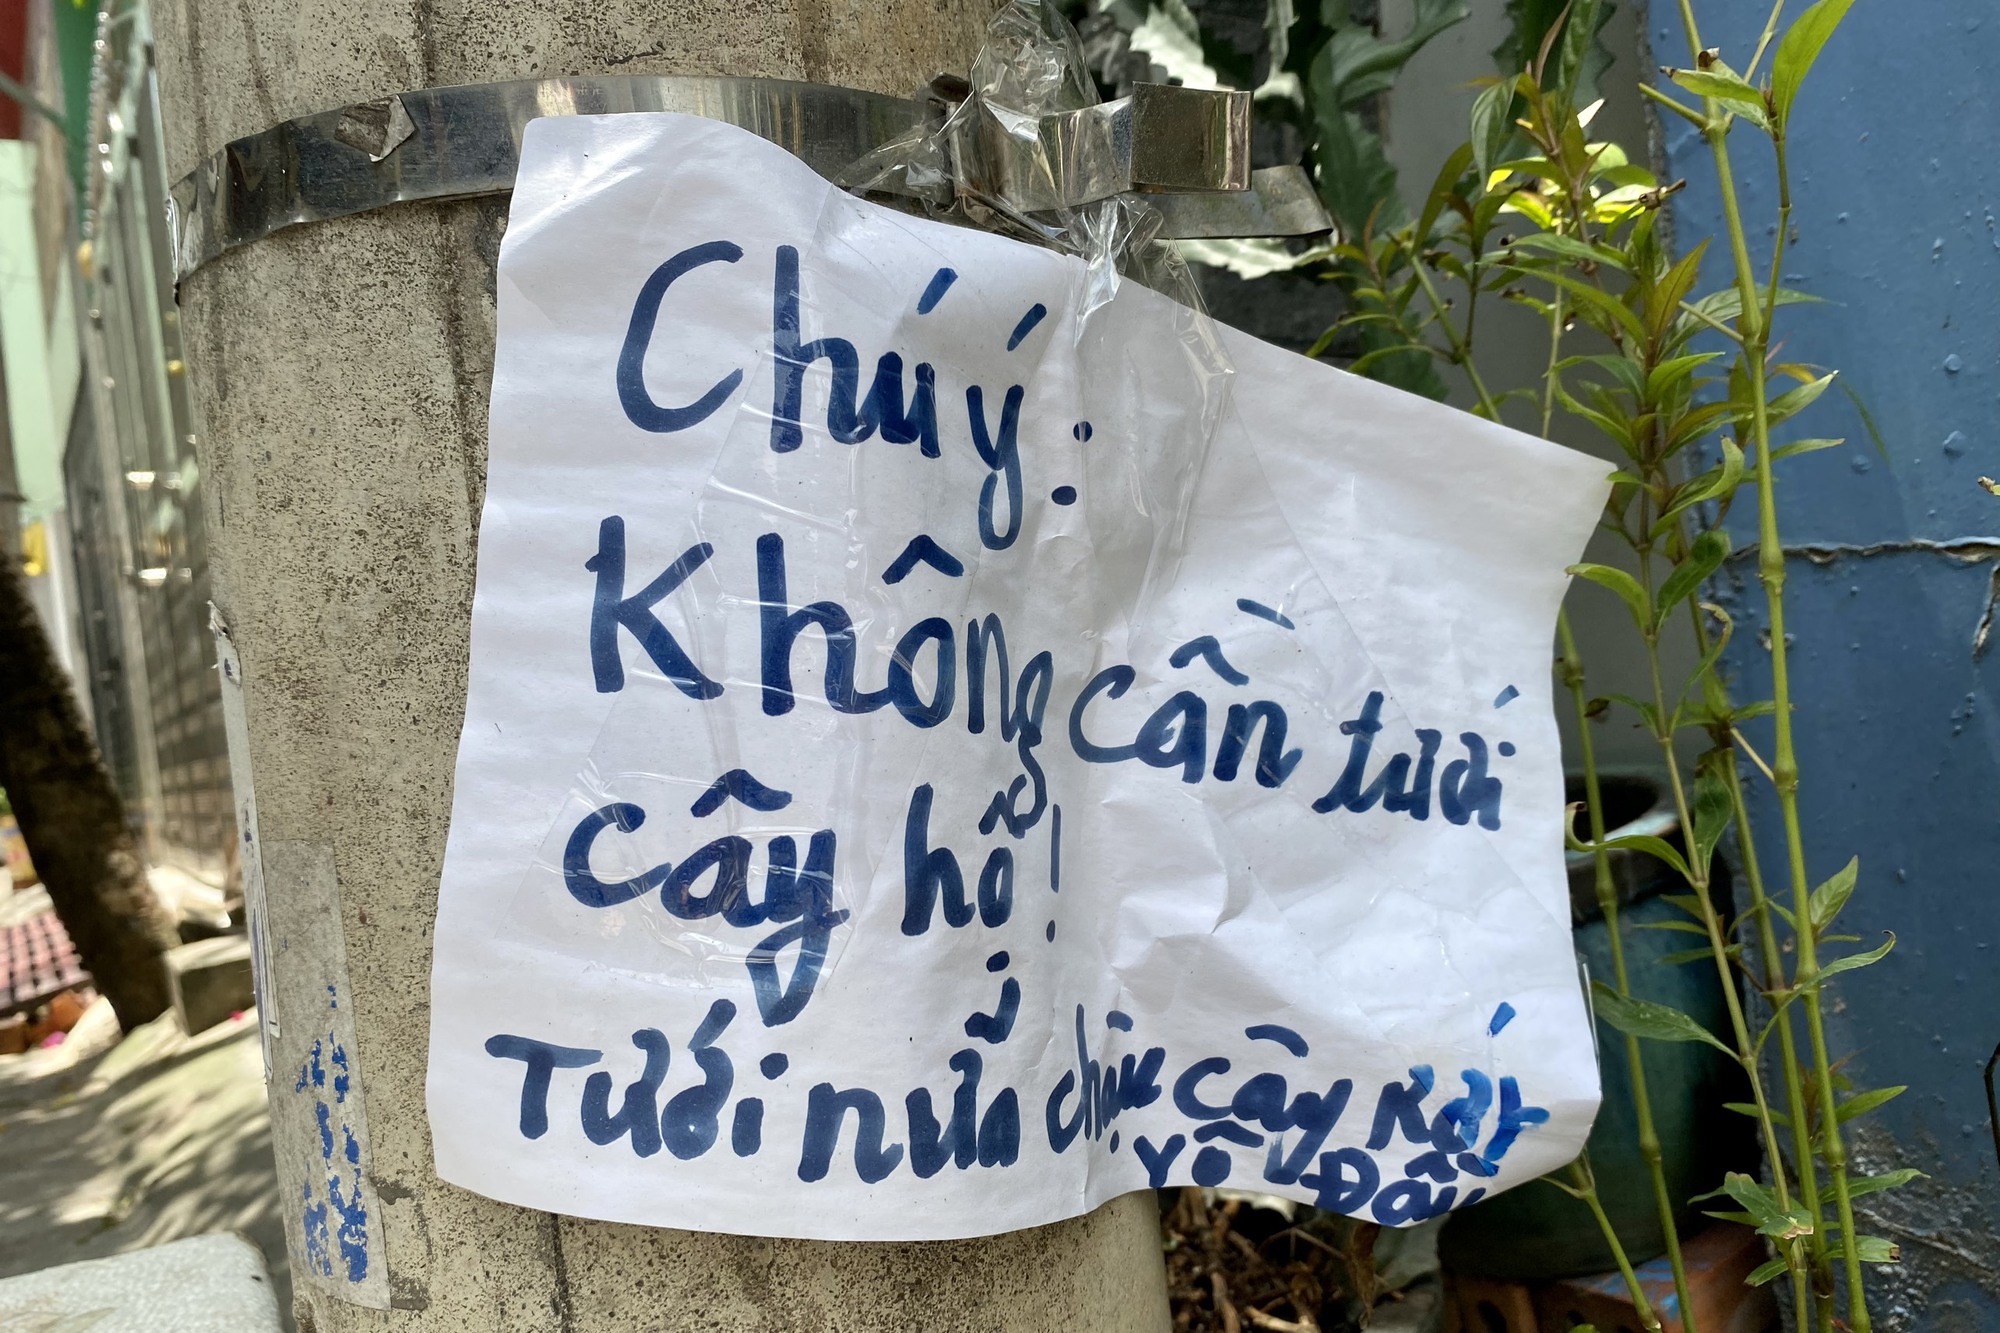 Chú ý:
Không cần tưới
cây hộ!
Tưới nữa chậu cây
vô Đầu